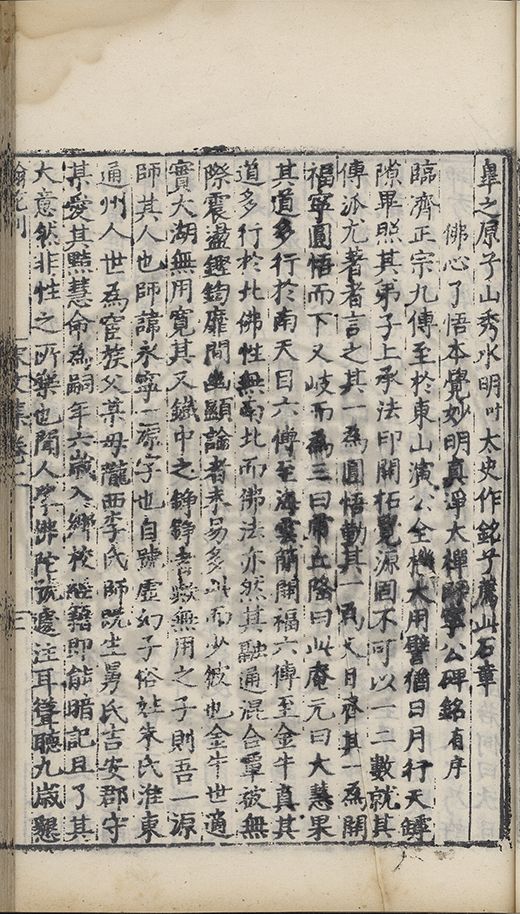 皐之原子山秀水明叶太史作銘子薦此石章
佛心了悟本覺妙明真淨大禪師寧公碑銘有序
臨濟正宗九傳至於東山演公全機大用譬猶日月行天罅
隙畢照其弟子上承法印開拓覺源固不可以一二數就其
傳派尤著者言之其一為圓悟勤其一為天目齊其一為開
福寧圓悟而下又岐而為三曰虎丘隆曰此庵元曰大慧果
其道多行於南天目六傳至海雲簡開福六傳至金牛真其
道多行於北佛性無南北而佛法亦然其融通混合覃被無
際震盪鏗鍧靡間幽顯論者未易多此而少彼也金牛世適
實大湖無用寬其又鐵中之錚錚者歟無用之子則吾一源
師其人也師諱永寧一源字也自號虛幻子俗姓朱氏淮東
通州人世為宦族父某母隴西李氏師既生舅氏吉安郡守
某愛其黠慧命為嗣年六歲入鄉校經籍即能暗記且了其
大意然非性之所樂也聞人學佛陀號處注耳聳聽九歲懇
文集卷二
三